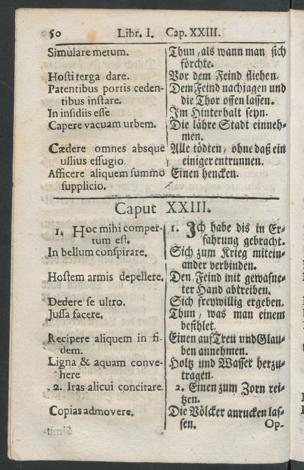 50 Libr. I. Cap. XXIII.
Simulare metum. Thun, als wann man sich
förchte.
Hosti terga dare. Vor dem Feind fliehen.
Patentibus portis ceden- Dem Feind nachjagen und
tibus instare. die Thor offen lassen.
In insidiis esse. Im Hinterhalt seyn.
Capere vacuam urbem. Die lähre Stadt einneh-
men.
Cædere omnes absque Alle tödten, ohne daß ein
ullius effugio. einiger entrunnen.
Afficere aliquem summo Einen hencken.
supplicio.
Caput XXIII.
1. Hoc mihi comper- 1. Jch habe dis in Er-
tum est. fahrung gebracht.
In bellum conspirare. Sich zum Krieg mitein-
ander verbinden.
Hostem armis depellere. Den Feind mit gewafne-
ter Hand abtreiben.
Dedere se ultro. Sich freywillig ergeben.
Jussa facere. Thun, was man einem
befihlet.
Recipere aliquem in fi- Einen auf Treu und Glau-
dem. ben annehmen.
Ligna & aquam conve- Holtz und Wasser herzu-
here tragen.
2. Iras alicui concitare. 2. Einen zum Zorn rei-
tzen.
Copias admovere. Die Völcker anrucken las-
sen. Op-